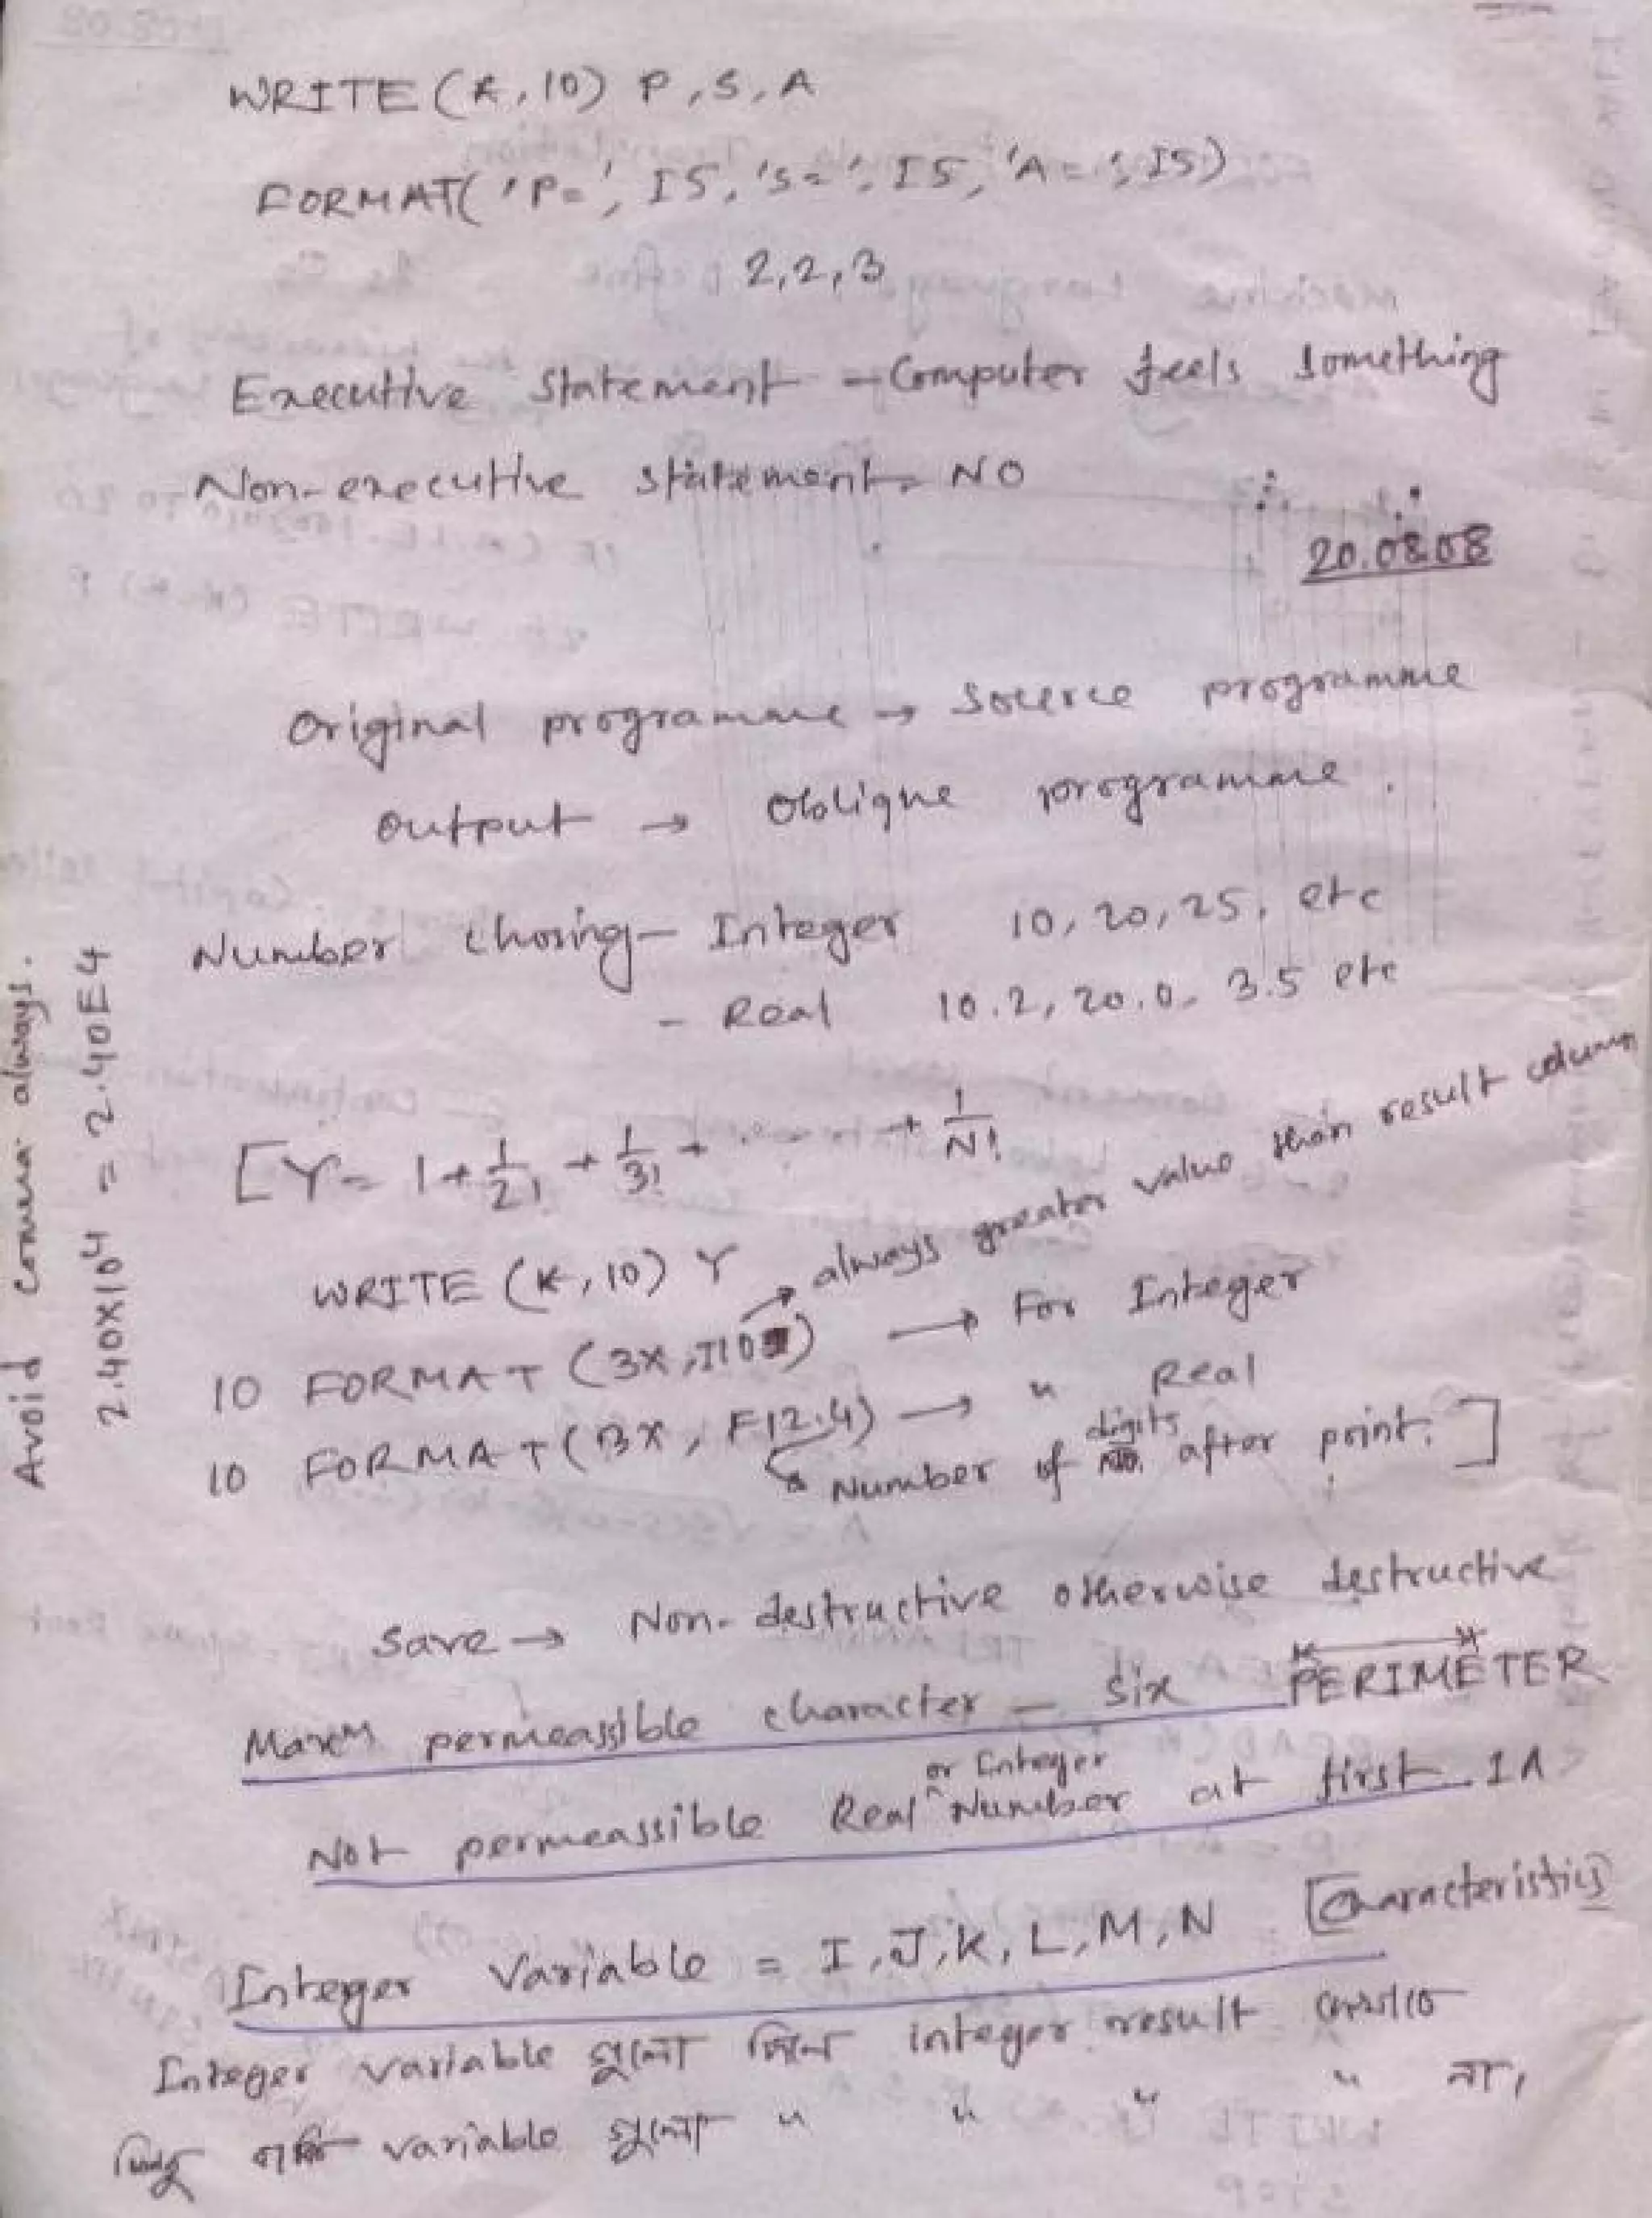 WRITE (K, 10) P, S, A
FORMAT( 'P=', I5, 'S=', I5, 'A=', I5)
2, 2, 3
Executive Statement - Computer feels something
Non-executive statement - NO
20.08.08
Original programme → Source programme
Output → Oblique programme.
Number chosing - Integer 10, 20, 25, etc
- Real 10.2, 20.0, 3.5 etc
Avoid comma always.
2.40X10⁴ = 2.40E4
[Y = 1 + 1/2! + 1/3! + ....... + 1/N!
WRITE (K, 10) Y → always greater value than result column
10 FORMAT (3X, I10) → For Integer
10 FORMAT (3X, F12.4) → " Real
Number of digits after point. ]
Save → Non-destructive otherwise destructive
Maxm permeassible character - Six PERIMETER
Not permeassible Real or Integer Number at first 1A
Integer Variable = I, J, K, L, M, N [Characteristics]
Integer variable গুলো দিলে integer result
কিন্তু variable গুলো " " " " না।